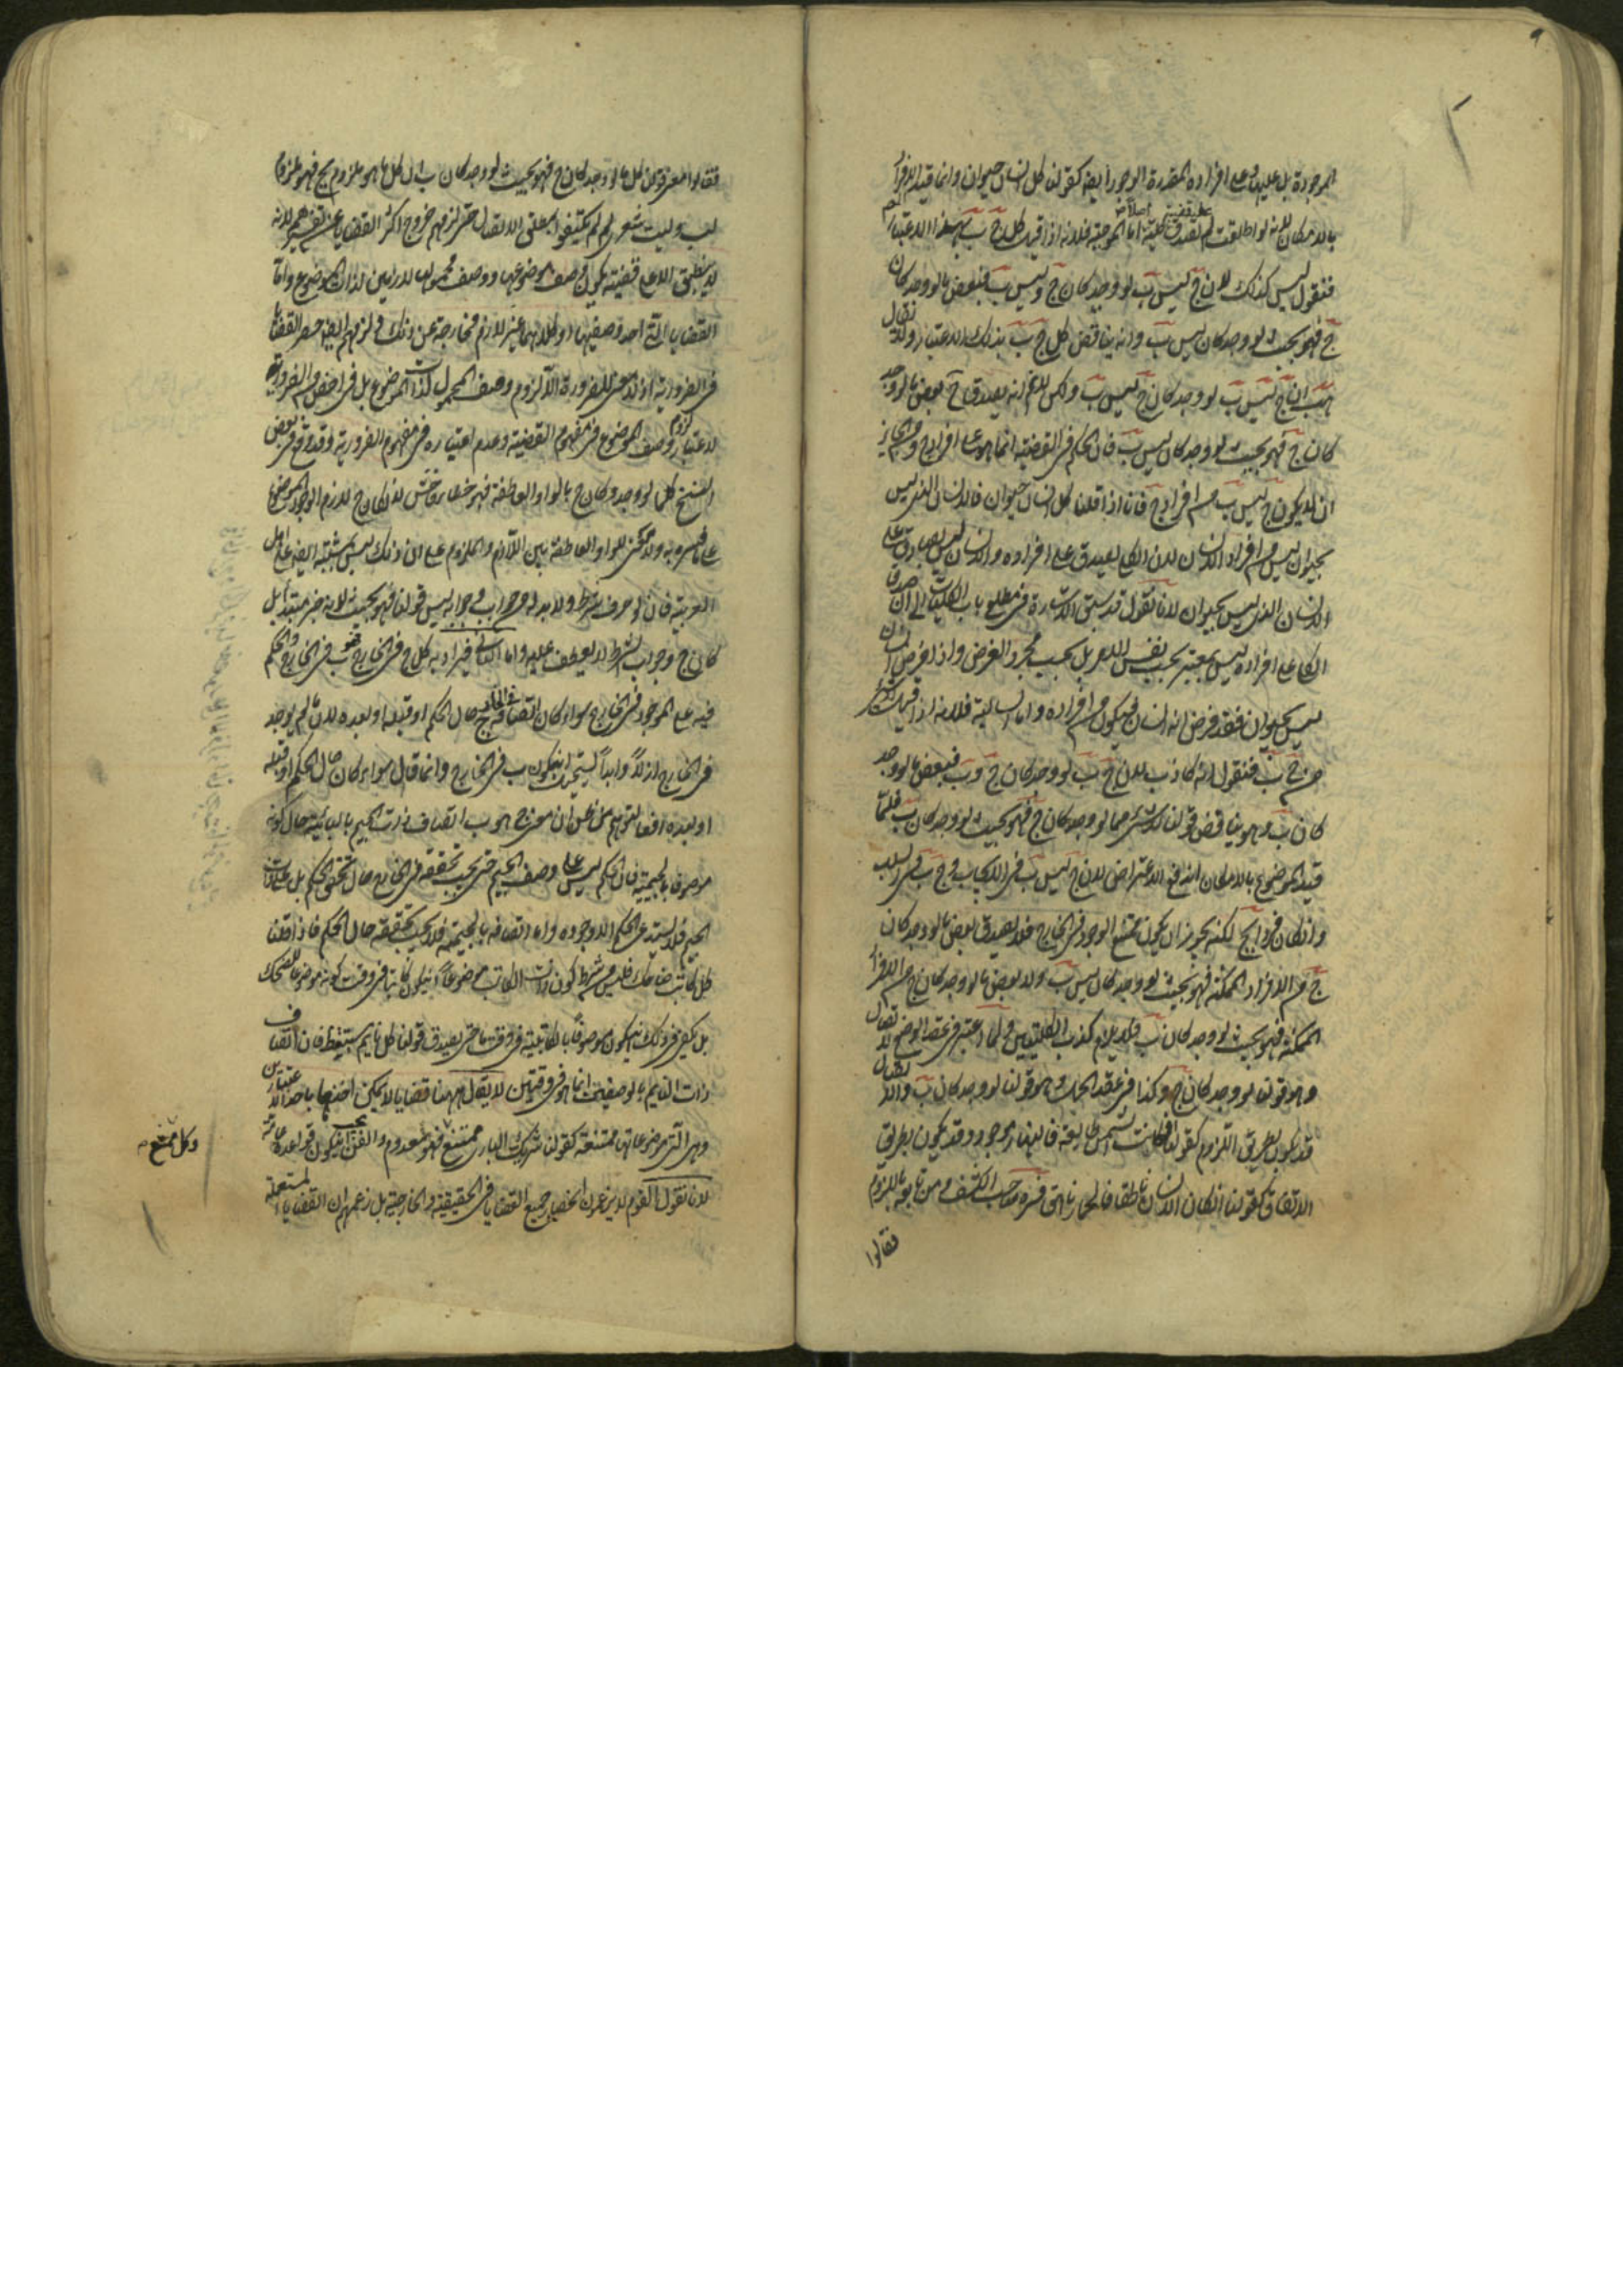 الموجودة بل عليها وعلى افراده المقدرة الوجود ايضا كقولنا كل انسان حيوان وانما قيد الافراد
بالامكان لانه لو اطلقت لم تصدق كلية اما الموجبة فلانه اذا قيل كل ج ب بهذا الاعتبار
فنقول ليس كذلك لان ج ليس ب لو وجد كان ج وليس ب فبعض ما لو وجد كان
ج فهو بحيث لو وجد كان ليس ب وانه يناقض كل ج ب بذلك الاعتبار ولا يقال
هب ان ج ليس ب لو وجد كان ج ليس ب ولكن لا نم انه يصدق ح بعض ما لو وجد
كان ج فهو بحيث لو وجد كان ليس ب فان الحكم في القضية انما هو على افراد ج ومن الجايز
ان لا يكون ج ليس ب من افراد ج فانا اذا قلنا كل انسان حيوان فالانسان الذي ليس
بحيوان ليس من افراد الانسان لان الكلي يصدق على افراده والانسان ليس بصادق على
الانسان الذي ليس بحيوان لانا نقول قد سبق الاشارة في مطلع باب الكليات الى ان صدق
الكلي على افراده ليس بمعتبر بحسب نفس الامر بل بحسب مجرد الفرض واذا فرض انسان
ليس بحيوان فقد فرض انه انسان فيكون من افراده واما السالبة فلانه اذا قيل لا شيء
من ج ب فنقول انه كاذب لان ج ب لو وجد كان ج وب فبعض ما لو وجد
كان ب وهو يناقض قولنا لا شيء مما لو وجد كان ج فهو بحيث لو وجد كان ب فلما
قيد الموضوع بالامكان اندفع الاعتراض لان ج ليس ب في الايجاب وج ب في السلب
وان كان فردا لج لكنه يجوز ان يكون ممتنع الوجود في الخارج فلا يصدق بعض ما لو وجد كان
ج من الافراد الممكنة فهو بحيث لو وجد كان ليس ب ولا بعض ما لو وجد كان ج من الافراد
الممكنة فهو بحيث لو وجد كان ب فلا يلزم كذب الكليتين ولما اعتبر في عقد الوضع الاتصال
وهو قولنا لو وجد كان ج وكذا في عقد الحمل وهو قولنا لو وجد كان ب والاتصال
قد يكون بطريق اللزوم كقولنا ان كانت الشمس طالعة فالنهار موجود وقد يكون بطريق
الاتفاق كقولنا ان كان الانسان ناطقا فالحمار ناهق فسره صاحب الكشف ومن تابعه باللزوم
فقالوا
فقالوا معنى قولنا كل ما لو وجد كان ج فهو بحيث لو وجد كان ب ان كل ما هو ملزوم لج فهو ملزوم
لب وليت شعري لم لم يكتفوا بمطلق الاتصال حتى لزمهم خروج اكثر القضايا عن تفسيرهم لانه
لا ينطبق الا على قضية يكون وصف موضوعها ووصف محمولها لازمين لذات الموضوع واما
القضايا التي احد وصفيها او كلاهما غير لازم فخارجة عن ذلك ولزمهم ايضا حصر القضايا
في الضرورية اذ لا معنى للضرورة الا لزوم وصف المحمول لذات الموضوع بل في اخص من الضرورية
لاعتبار لزوم وصف الموضوع في مفهوم القضية وعدم اعتباره في مفهوم الضرورية وقد وقع في بعض
النسخ كلما لو وجد وكان ج بالواو العاطفة فهو خطا فاحش لان كان ج لازم لوجود الموضوع
على ما فسره به ولا معنى للواو العاطفة بين اللازم والملزوم على ان ذلك ليس بمشتبه ايضا على اهل
العربية فان لو حرف شرط ولا بد له من جواب وجوابه ليس قولنا فهو بحيث لانه خبر مبتدا بل
كان ج وجواب الشرط لا يعطف عليه واما الثاني فيراد به كل ج في الخارج فهو ب في الخارج والحكم
فيه على الموجود في الخارج سواء كان اتصافه بج في الخارج حال الحكم او قبله او بعده لان ما لم يوجد
في الخارج ازلا وابدا يستحيل ان يكون ب في الخارج وانما قال سواء كان حال الحكم او قبله
او بعده دفعا لتوهم من ظن ان معنى ج هو ب اتصاف ذات الجيم بالبائية حال كونه
موصوفا بالجيمية فان الحكم ليس على وصف الجيم حتى يجب تحققه في الخارج حال تحقق الحكم بل على ذات
الجيم فلا يستدعي الحكم الا وجوده واما اتصافه بالجيمية فلا يجب تحققه حال الحكم فاذا قلنا
كل كاتب ضاحك فليس من شرط كون ذات الكاتب موضوعا ان يكون كاتبا في وقت كونه موضوعا للضحك
بل يكفي في ذلك ان يكون موصوفا بالكاتبية في وقت ما حتى يصدق قولنا كل نايم مستيقظ فان اتصاف
ذات النايم بالوصفين انما هو في وقتين لا يقال ههنا قضايا لا يمكن اخذها باحد الاعتبارين
وهي التي موضوعاتها ممتنعة كقولنا شريك الباري ممتنع فهو معدوم والفن يجب ان يكون قواعده عامة
وكل ممتنع
لانا نقول القوم لا يزعمون انحصار جميع القضايا في الحقيقية والخارجية بل زعمهم ان القضايا المستعملة